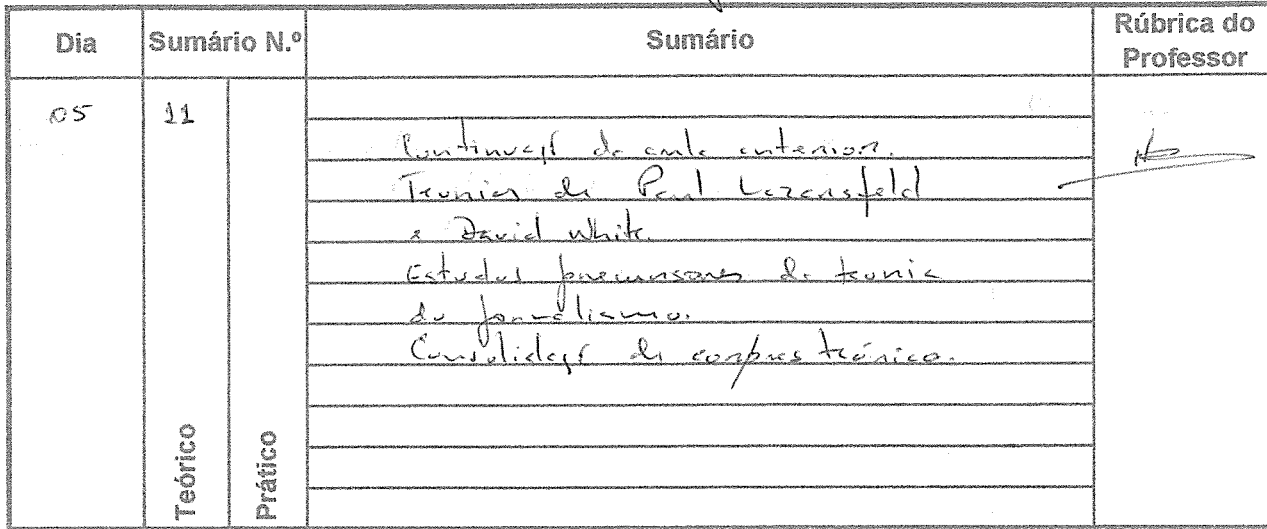 Dia Sumário N.º Sumário Rúbrica do Professor
05 11
Continuaçã da aula anterior.
Teorias de Paul Lazarsfeld
e David White.
Estudos precursores da teoria
do jornalismo.
Consolidaçã do corpus teórico.
Teórico Prático